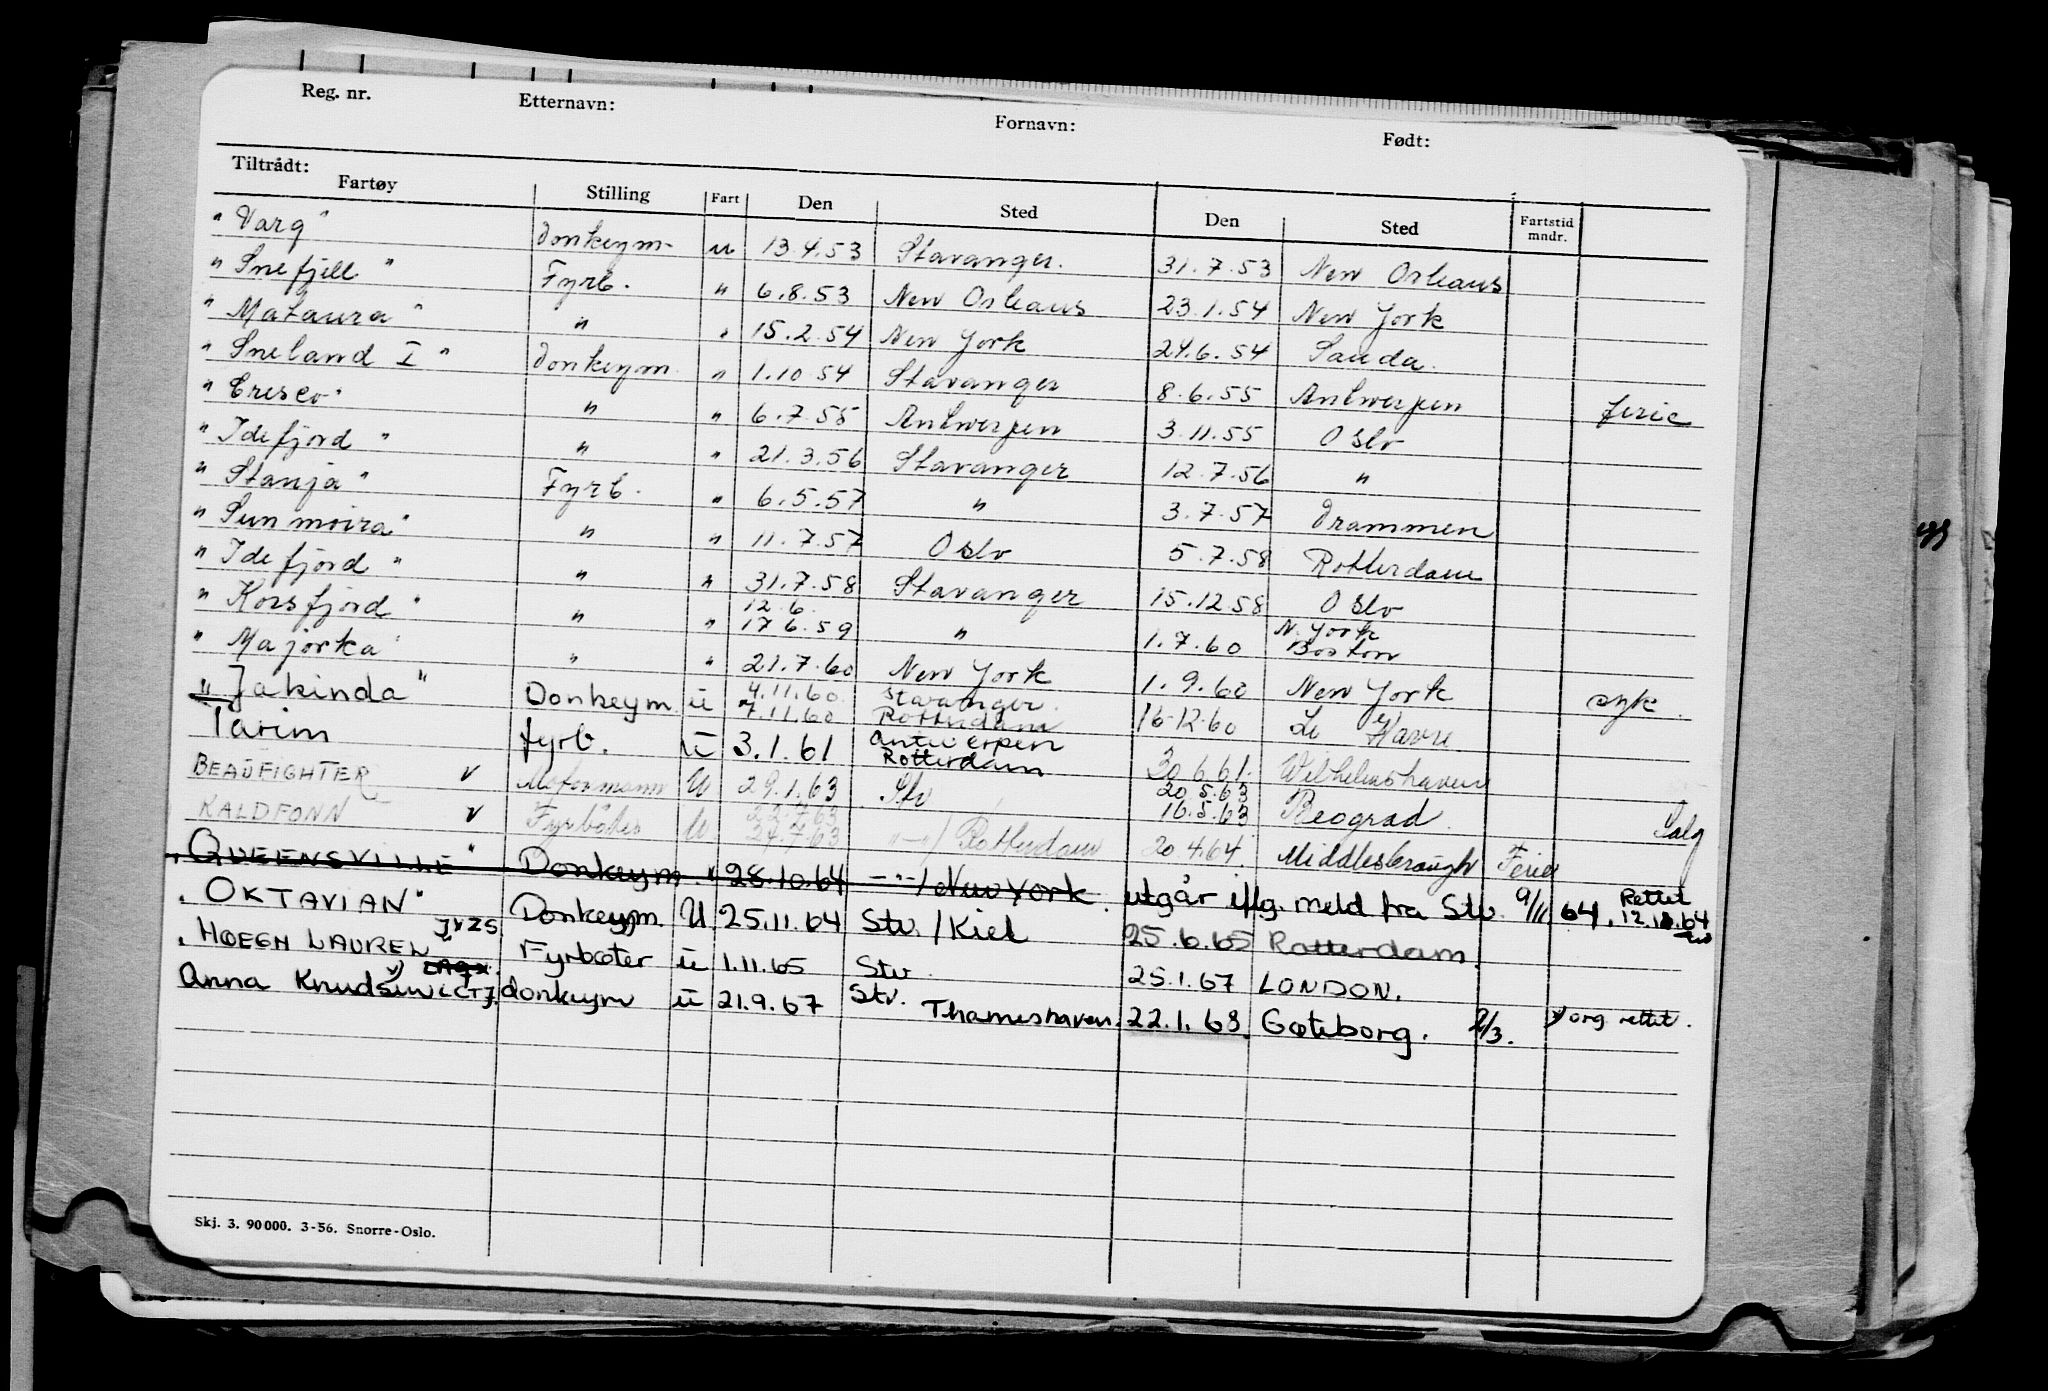 Reg. nr. Etternavn: Fornavn: Født:
Tiltrådt:
Fartøy Stilling Fart Den Sted Den Sted Fartstid mndr.
"Varg" Donkeym. u 13.4.53 Stavanger. 31.7.53 New Orleans
"Snefjell" Fyrb. " 6.8.53 New Orleans 23.1.54 New York
"Mataura" " " 15.2.54 New York 24.6.54 Sauda.
"Sneland I" Donkeym. " 1.10 54 Stavanger 8.6.55 Antwerpen ferie
"Cresco" " " 6.7.55 Antwerpen 3.11.55 Oslo
"Idefjord" " " 21.3.56 Stavanger 12.7.56 "
"Stanja" Fyrb. " 6.5.57 " 3.7.57 Drammen
"Sunmoira" " " 11.7.57 Oslo 5.7.58 Rotterdam
"Idefjord" " " 31.7.58 Stavanger 15.12.58 Oslo
"Korsfjord" " " 12.6. 17 6.59 " 1.7.60 N. York Boston
"Majorka" " " 21.7.60 New York 1.9.60 New York syk.
"Jakinda" Donkeym u 4.11.60 7.11.60 Stavanger. Rotterdam 16.12.60 Le Havre
Tarim fyrb. u 3.1.61 Antwerpen Rotterdam 30 6.61. Wilhelmshaven
BEAUFIGHTER v Motormann U 29.1.63 Stv 20 5.63 16.5.63 Beograd Salg
KALDFONN v Fyrbøter U. 22.7.63 24.7.63 -"-/Rotterdam 20 4.64. Middlesbrough Ferie
"QUEENSVILLE" Donkeym. u 28.10.64 -"-/New York. utgår iflg. meld fra Stv. 9/11 64. Rettet 12.11.64
"OKTAVIAN" Donkeym. U 25.11.64 Stv./Kiel 25.6.65 Rotterdam.
"HØEGH LAUREL" JXZS Fyrbøter u 1.11.65 Stv. 25.1.67 LONDON.
Anna Knudsen LCTJ. donkeym u 21.9.67 Stv. Thameshaven. 22.1.68 Gøteborg. 2/3. org. rettet.
Skj. 3. 90000. 3-56. Snorre-Oslo.